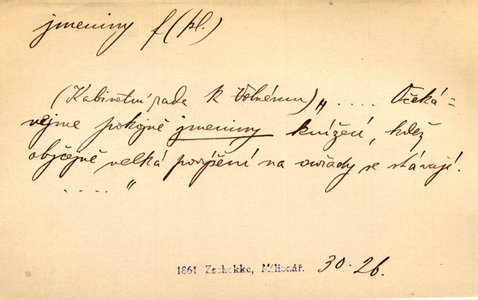 jmeniny f (pl.)
(Kabinetní rada k Volnému) „ .... Očeká=
vejme pokojně jmeniny knížecí, kdež
obyčejně velká povýšení na ouřady se stávají.
..... "
1861 Zschokke, Milionář. 30. 26.